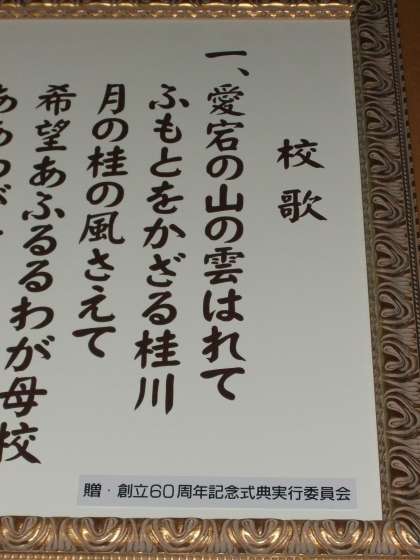 校歌
一、愛宕の山の雲はれて
ふもとをかざる桂川
月の桂の風さえて
希望あふるるわが母校
贈・創立60周年記念式典実行委員会